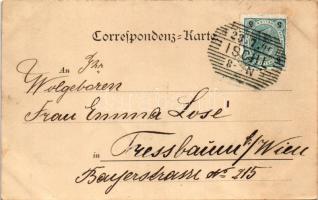 Correspondenz-Karte
ISCHL
8-N
An Ihr
Wolgeboren
Frau Emma Losé
in Pressbaum b/Wien
Bayerstrasse No 215